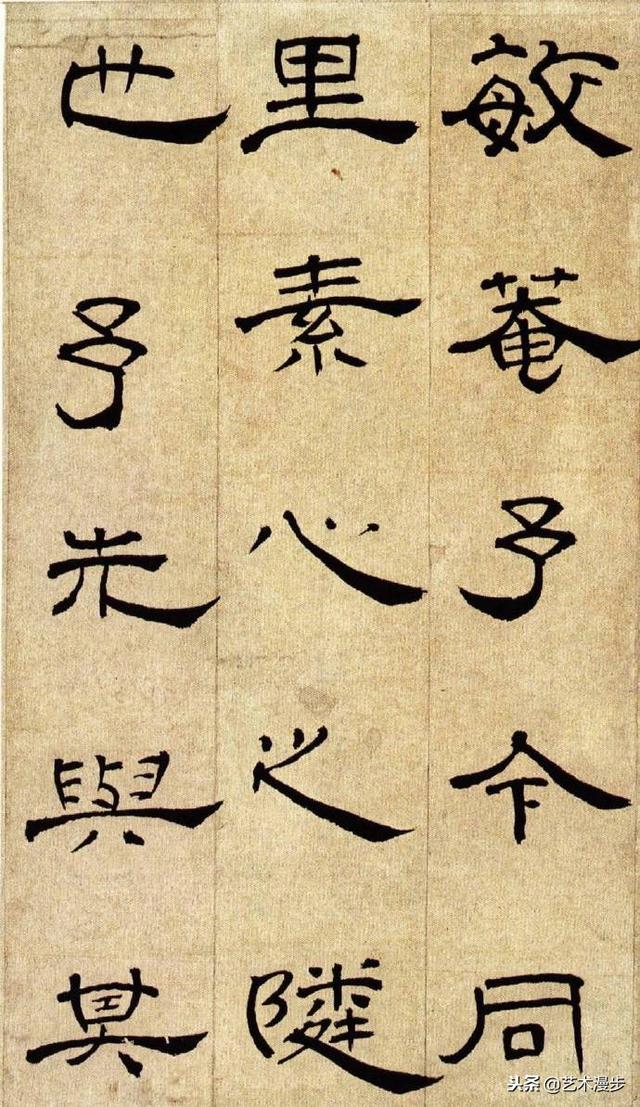 敏菴予今同
里素心之隣
也予先與其
头条 @艺术漫步